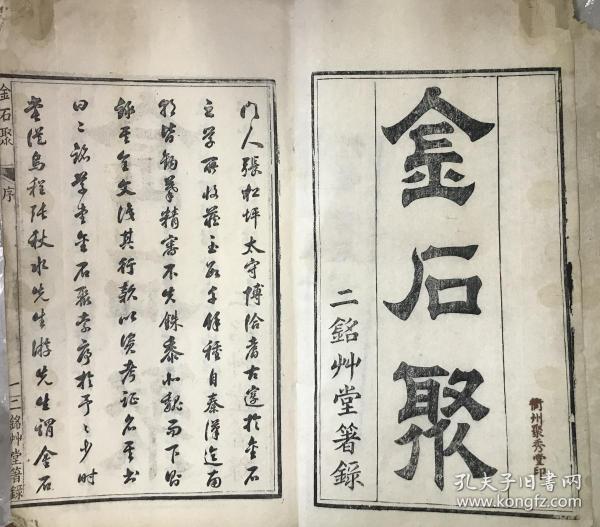 金石聚
二銘艸堂箸錄
衢州聚秀堂印
門人張松坪太守博洽耆古邃於金石
之學所收藏至數千餘種自秦漢迄南
朝皆鉤摹精審不失銖黍北魏而下則
錄其全文其行款以資考證名其書
曰二銘草堂金石聚索序於予〻少時
嘗從烏程張秋水先生游先生謂金石
金石聚 序 一 二銘艸堂箸錄
孔夫子旧书网
kongfz.com